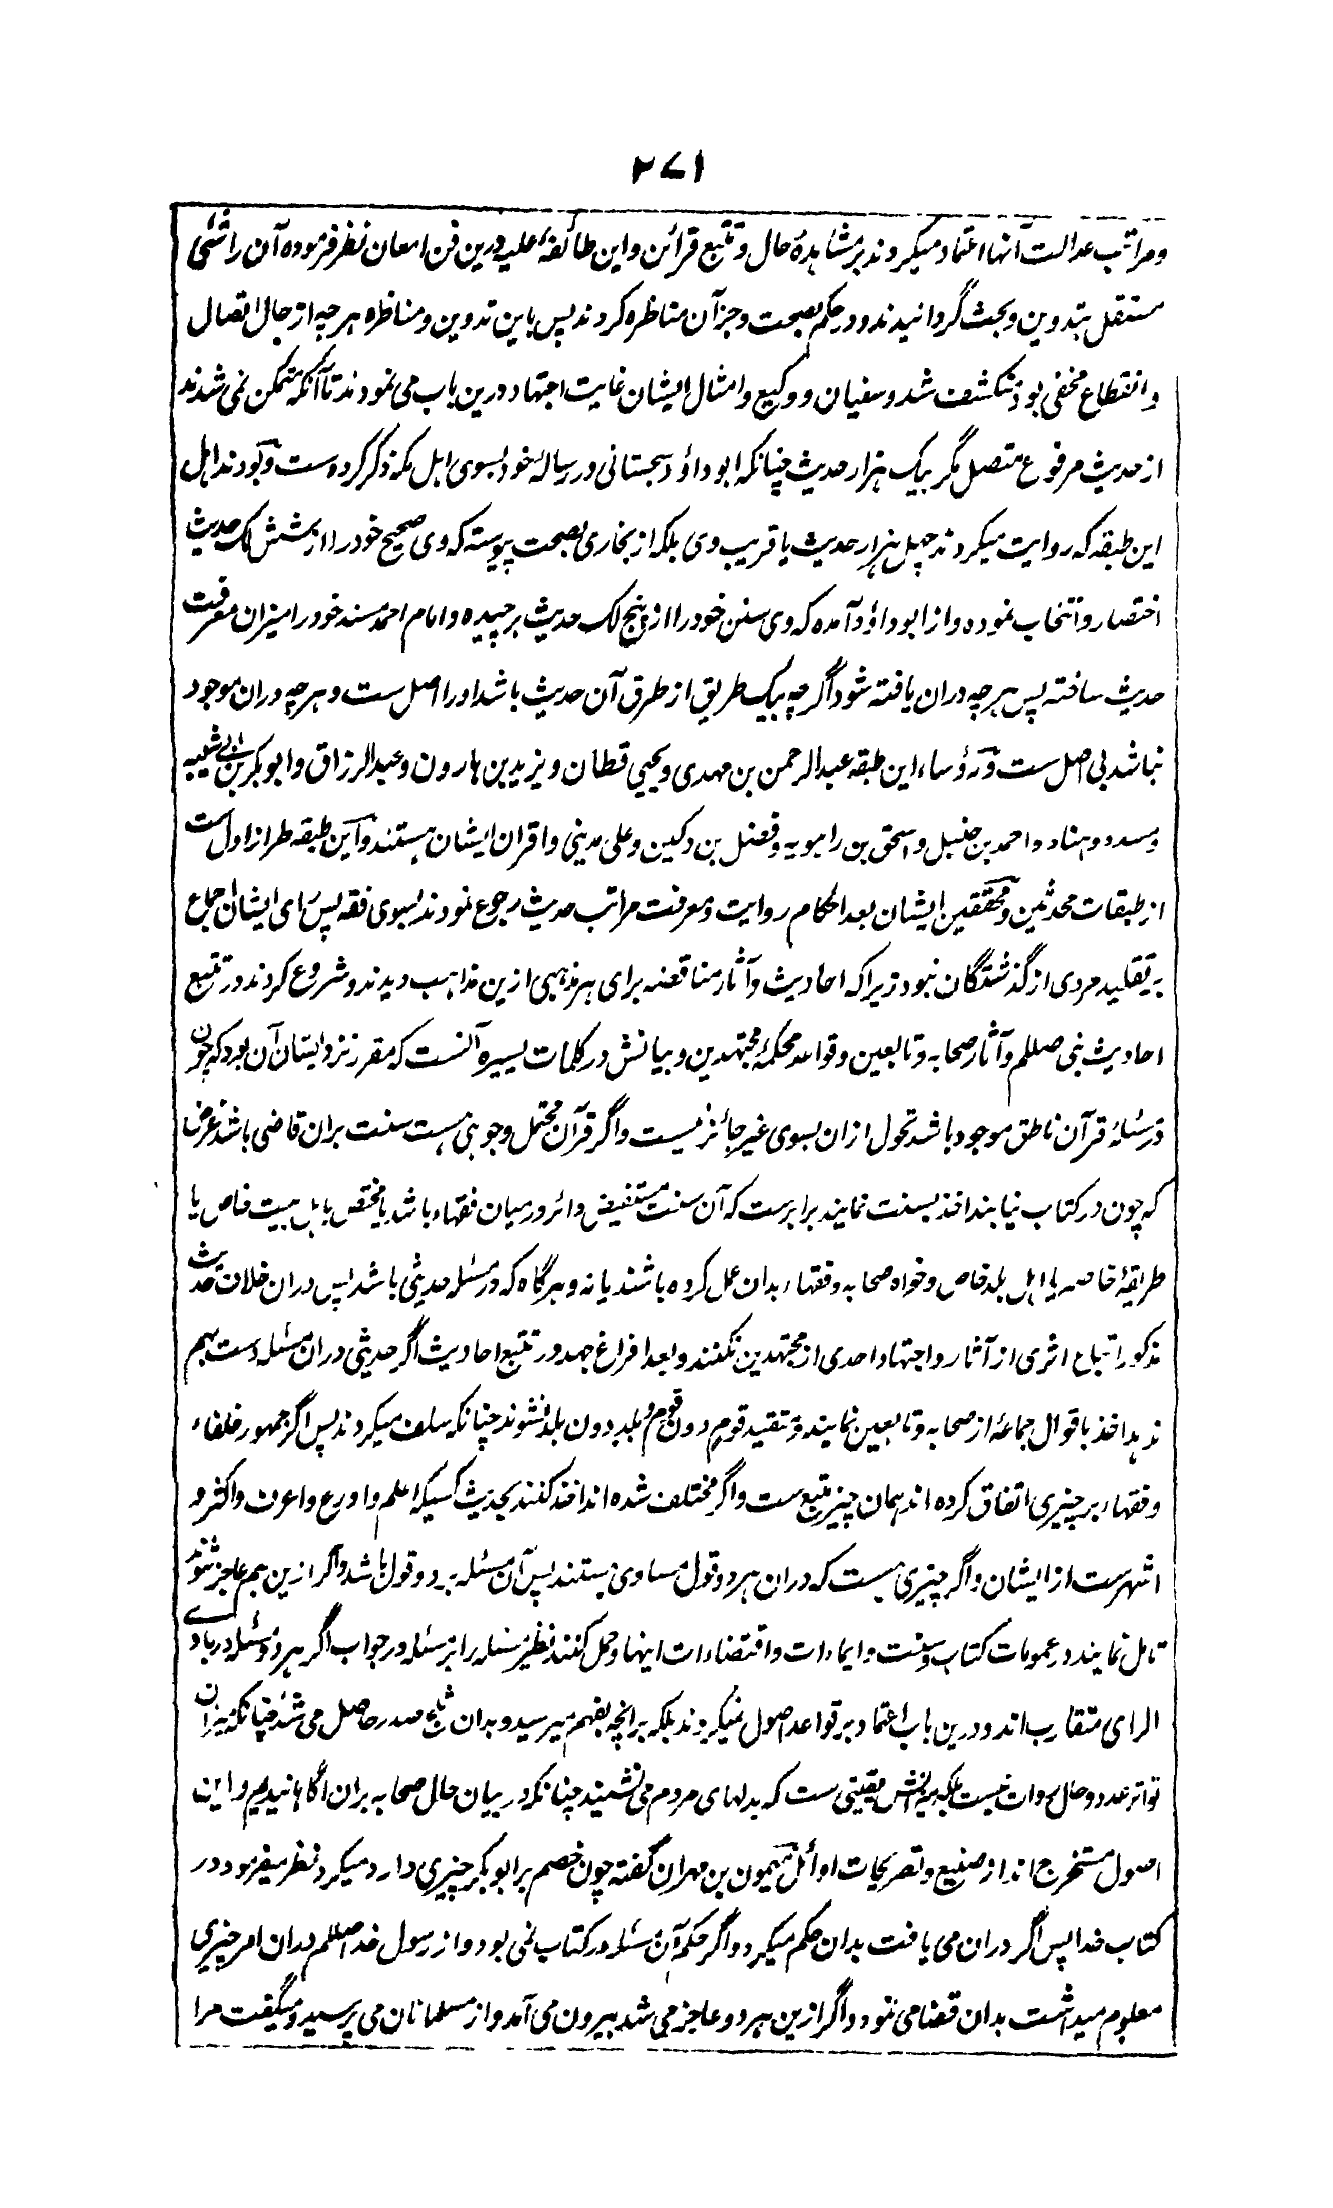 ۲۷۱
ومراتب عدالت آنها اعتماد میکردند بر مشاہدۂ حال و تتبع قرائن و این طائفۂ علیہ درین فن امعان نظر فرمودہ آن را شئی
مستقل بتدوین و بحث گردانیدند و در حکم بصحت و جز آن مناظرہ کردند پس باین تدوین و مناظرہ ہر چہ از حال اتصال
و انقطاع مخفی بود منکشف شد و سفیان و وکیع و امثال ایشان غایت اجتہاد درین باب می نمودند تا آنکہ متمکن نمی شدند
از حدیث مرفوع متصل مگر بیک ہزار حدیث چنانکہ ابو داؤد سجستانی در رسالۂ خود بسوی اہل مکہ ذکر کردہ ست و بودند اہل
این طبقہ کہ روایت میکردند چہل ہزار حدیث یا قریب وی بلکہ از بخاری بصحت پیوستہ کہ وی صحیح خود را از شش لک حدیث
اختصار و انتخاب نمودہ و از ابو داؤد آمدہ کہ وی سنن خود را از پنج لک حدیث بر چیدہ و امام احمد مسند خود را میزان معرفت
حدیث ساختہ پس ہر چہ دران یافتہ شود اگر چہ بیک طریق از طرق آن حدیث باشد او را اصل ست و ہر چہ دران موجود
نباشد بی اصل ست و رؤساء این طبقہ عبدالرحمن بن مہدی و یحیی قطان و یزید بن ہارون و عبدالرزاق و ابوبکر بن ابی شیبہ
و مسدد و ہناد و احمد بن حنبل و اسحق بن راہویہ و فضل بن دکین و علی مدینی و اقران ایشان ہستند و این طبقہ طراز اول ست
از طبقات محدثین و محققین ایشان بعد احکام روایت و معرفت مراتب حدیث رجوع نمودند بسوی فقہ پس رای ایشان اجماع
بہ تقلید مردی از گذشتگان نبود زیرا کہ احادیث و آثار مناقضہ برای ہر مذہبی ازین مذاہب دیدند و شروع کردند در تتبع
احادیث نبی صللم و آثار صحابہ و تابعین و قواعد محکمۂ مجتہدین و بیانش در کلمات یسیرہ آنست کہ مقرر نزد ایشان آن بود کہ چون
در مسئلۂ قرآن ناطق موجود باشد تحول ازان بسوی غیر جائز نیست و اگر قرآن محتمل وجوہی ہست سنت بران قاضی باشد غرض
کہ چون در کتاب نیابند اخذ بسنت نمایند برابرست کہ آن سنت مستفیض دائر در میان فقہاء باشد یا مختص باہل بیت خاص یا
طریقۂ خاصہ یا اہل بلد خاص و خواہ صحابہ و فقہاء بدان عمل کردہ باشند یا نہ و ہر گاہ کہ در مسئلہ حدیثی باشد پس دران خلاف حدیث
مذکور اتباع اثری از آثار و اجتہاد احدی از مجتہدین نکنند و بعد افراغ جہد در تتبع احادیث اگر حدیثی دران مسئلہ دست بہم
ندہد اخذ باقوال جماعۂ از صحابہ و تابعین نمایند و تقید قوم دون قوم و بلد دون بلد نشوند چنانکہ سلف میکردند پس اگر جمہور خلفاء
و فقہاء بر چیزی اتفاق کردہ اند ہمان چیز متبع ست و اگر مختلف شدہ اند اخذ کنند بحدیث کسیکہ اعلم و اورع و اعرف و اکثر و
اشہرست از ایشان و اگر چیزی ہست کہ دران ہر دو قول مساوی ہستند پس آن مسئلہ بر دو قول باشد و اگر ازین ہم عاجز شوند
تامل نمایند در عمومات کتاب و سنت و ایماءات و اقتضاءات اینہا و حمل کنند نظیر مسئلہ را بر مسئلہ در جواب اگر ہر دو مسئلہ در بادے
الرای متقارب اند و درین باب اعتماد بر قواعد اصول نمیکردند بلکہ بر انچہ بفہم میرسید و بدان ثلج صدر حاصل می شد چنانکہ میزان
تواتر عدد و حال رواة نیست بلکہ میزانش یقینی ست کہ بدلہای مردم می نشیند چنانکہ در بیان حال صحابہ بران آگاہانیدیم و این
اصول مستخرج اند از صنیع و تصریحات اوائل میمون بن مہران گفتہ چون خصم بر ابوبکر چیزی دارد میکرد نظر میفرمود در
کتاب خدا پس اگر دران می یافت بدان حکم میکرد و اگر حکم آن مسئلہ در کتاب نمی بود و از رسول خدا صللم دران امر چیزی
معلوم میداشت بدان قضا می نمود و اگر ازین ہر دو عاجز می شد بیرون می آمد و از مسلمانان می پرسید و میگفت مرا